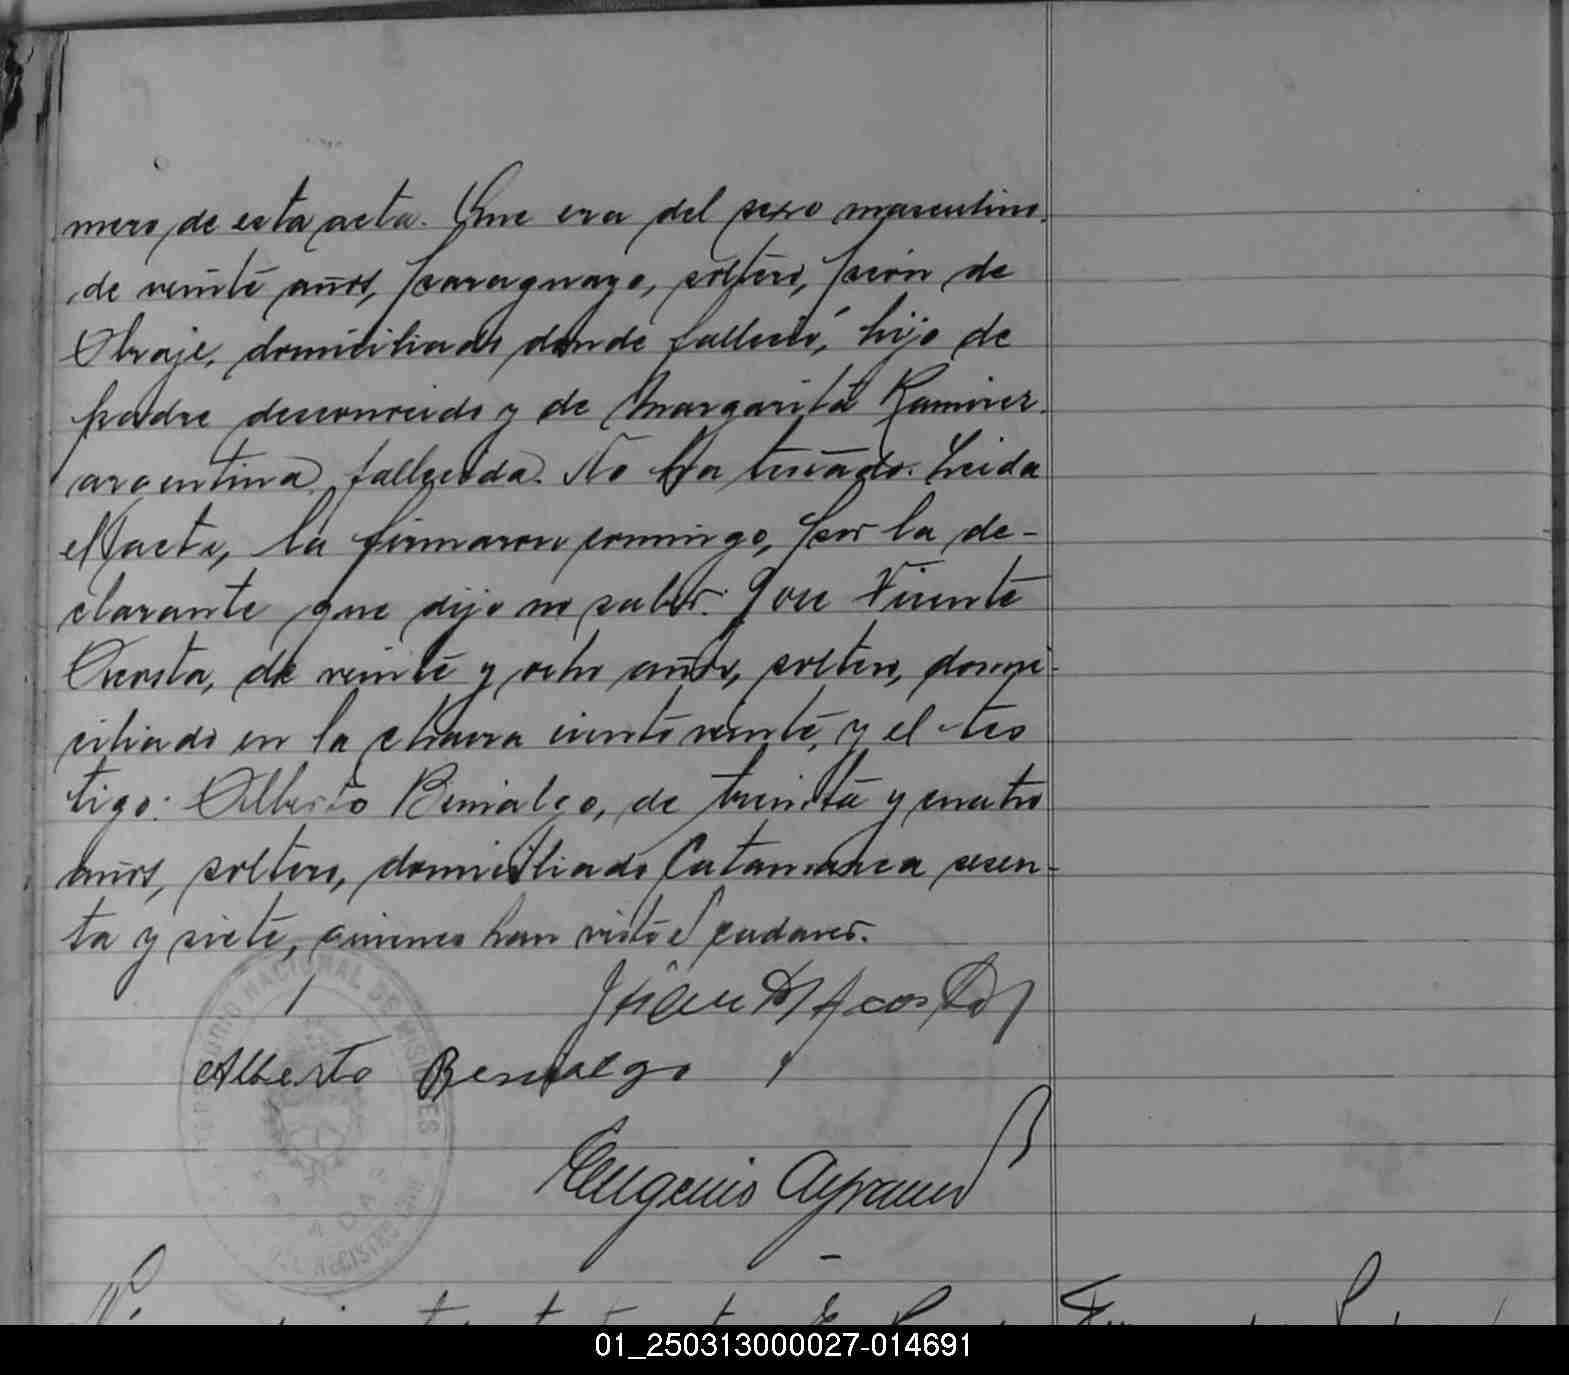 mero de esta acta. Que era del sexo masculino,
de veinte años, paraguayo, soltero, peón de
Obraje, domiciliado donde falleció, hijo de
padre desconocido y de Margarita Ramirez
argentina fallecida. No ha testado. Leida
el acta, la firmaron conmigo, por la de-
clarante que dijo no saber: José Vicente
Acosta, de veinte y ocho años, soltero, domi-
ciliado en la chacra ciento veinte, y el tes
tigo: Alberto Benialgo, de treinta y cuatro
años, soltero, domiciliado Catamarca sesen-
ta y siete, quienes han visto el cadaver.
Acosta
Alberto Benialgo
Eugenio
NACIONAL DE MISIONES
POSADAS
DEL REGISTRO CIVIL
01_250313000027-014691